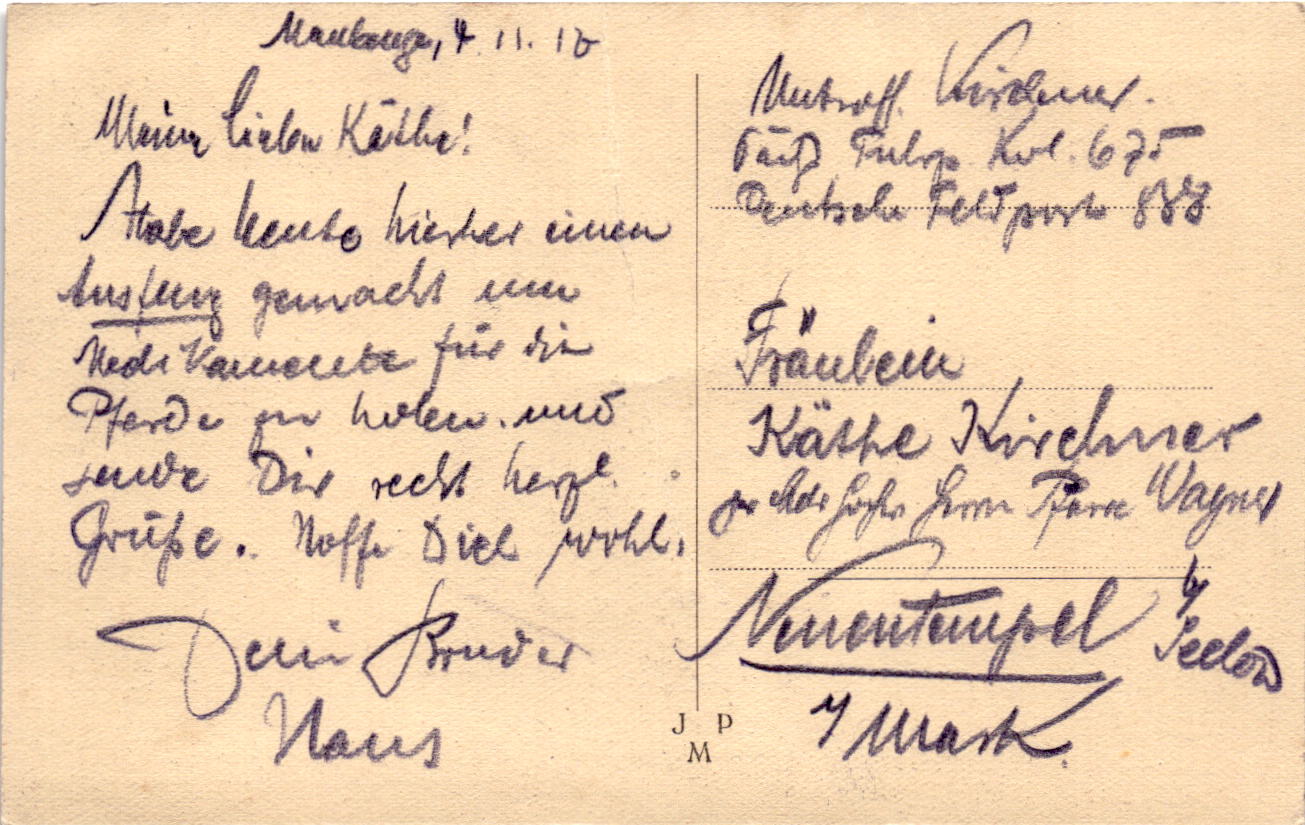 Maubeuge, 4 11. 17
Meine liebe Käthe!
Habe heute hierher einen
Ausflug gemacht um
Medikamente für die
Pferde zu holen. und
sende Dir recht herzl.
Grüße. Hoffe Dich wohl.
Dein Bruder
Hans
Untroff. Kirchner.
Kol. 675
Deutsche Feldpost
Fräulein
Käthe Kirchner
Herrn Pfarrer Wagner
Neuentempel b/
Seelow
i/ Mark.
J P
M